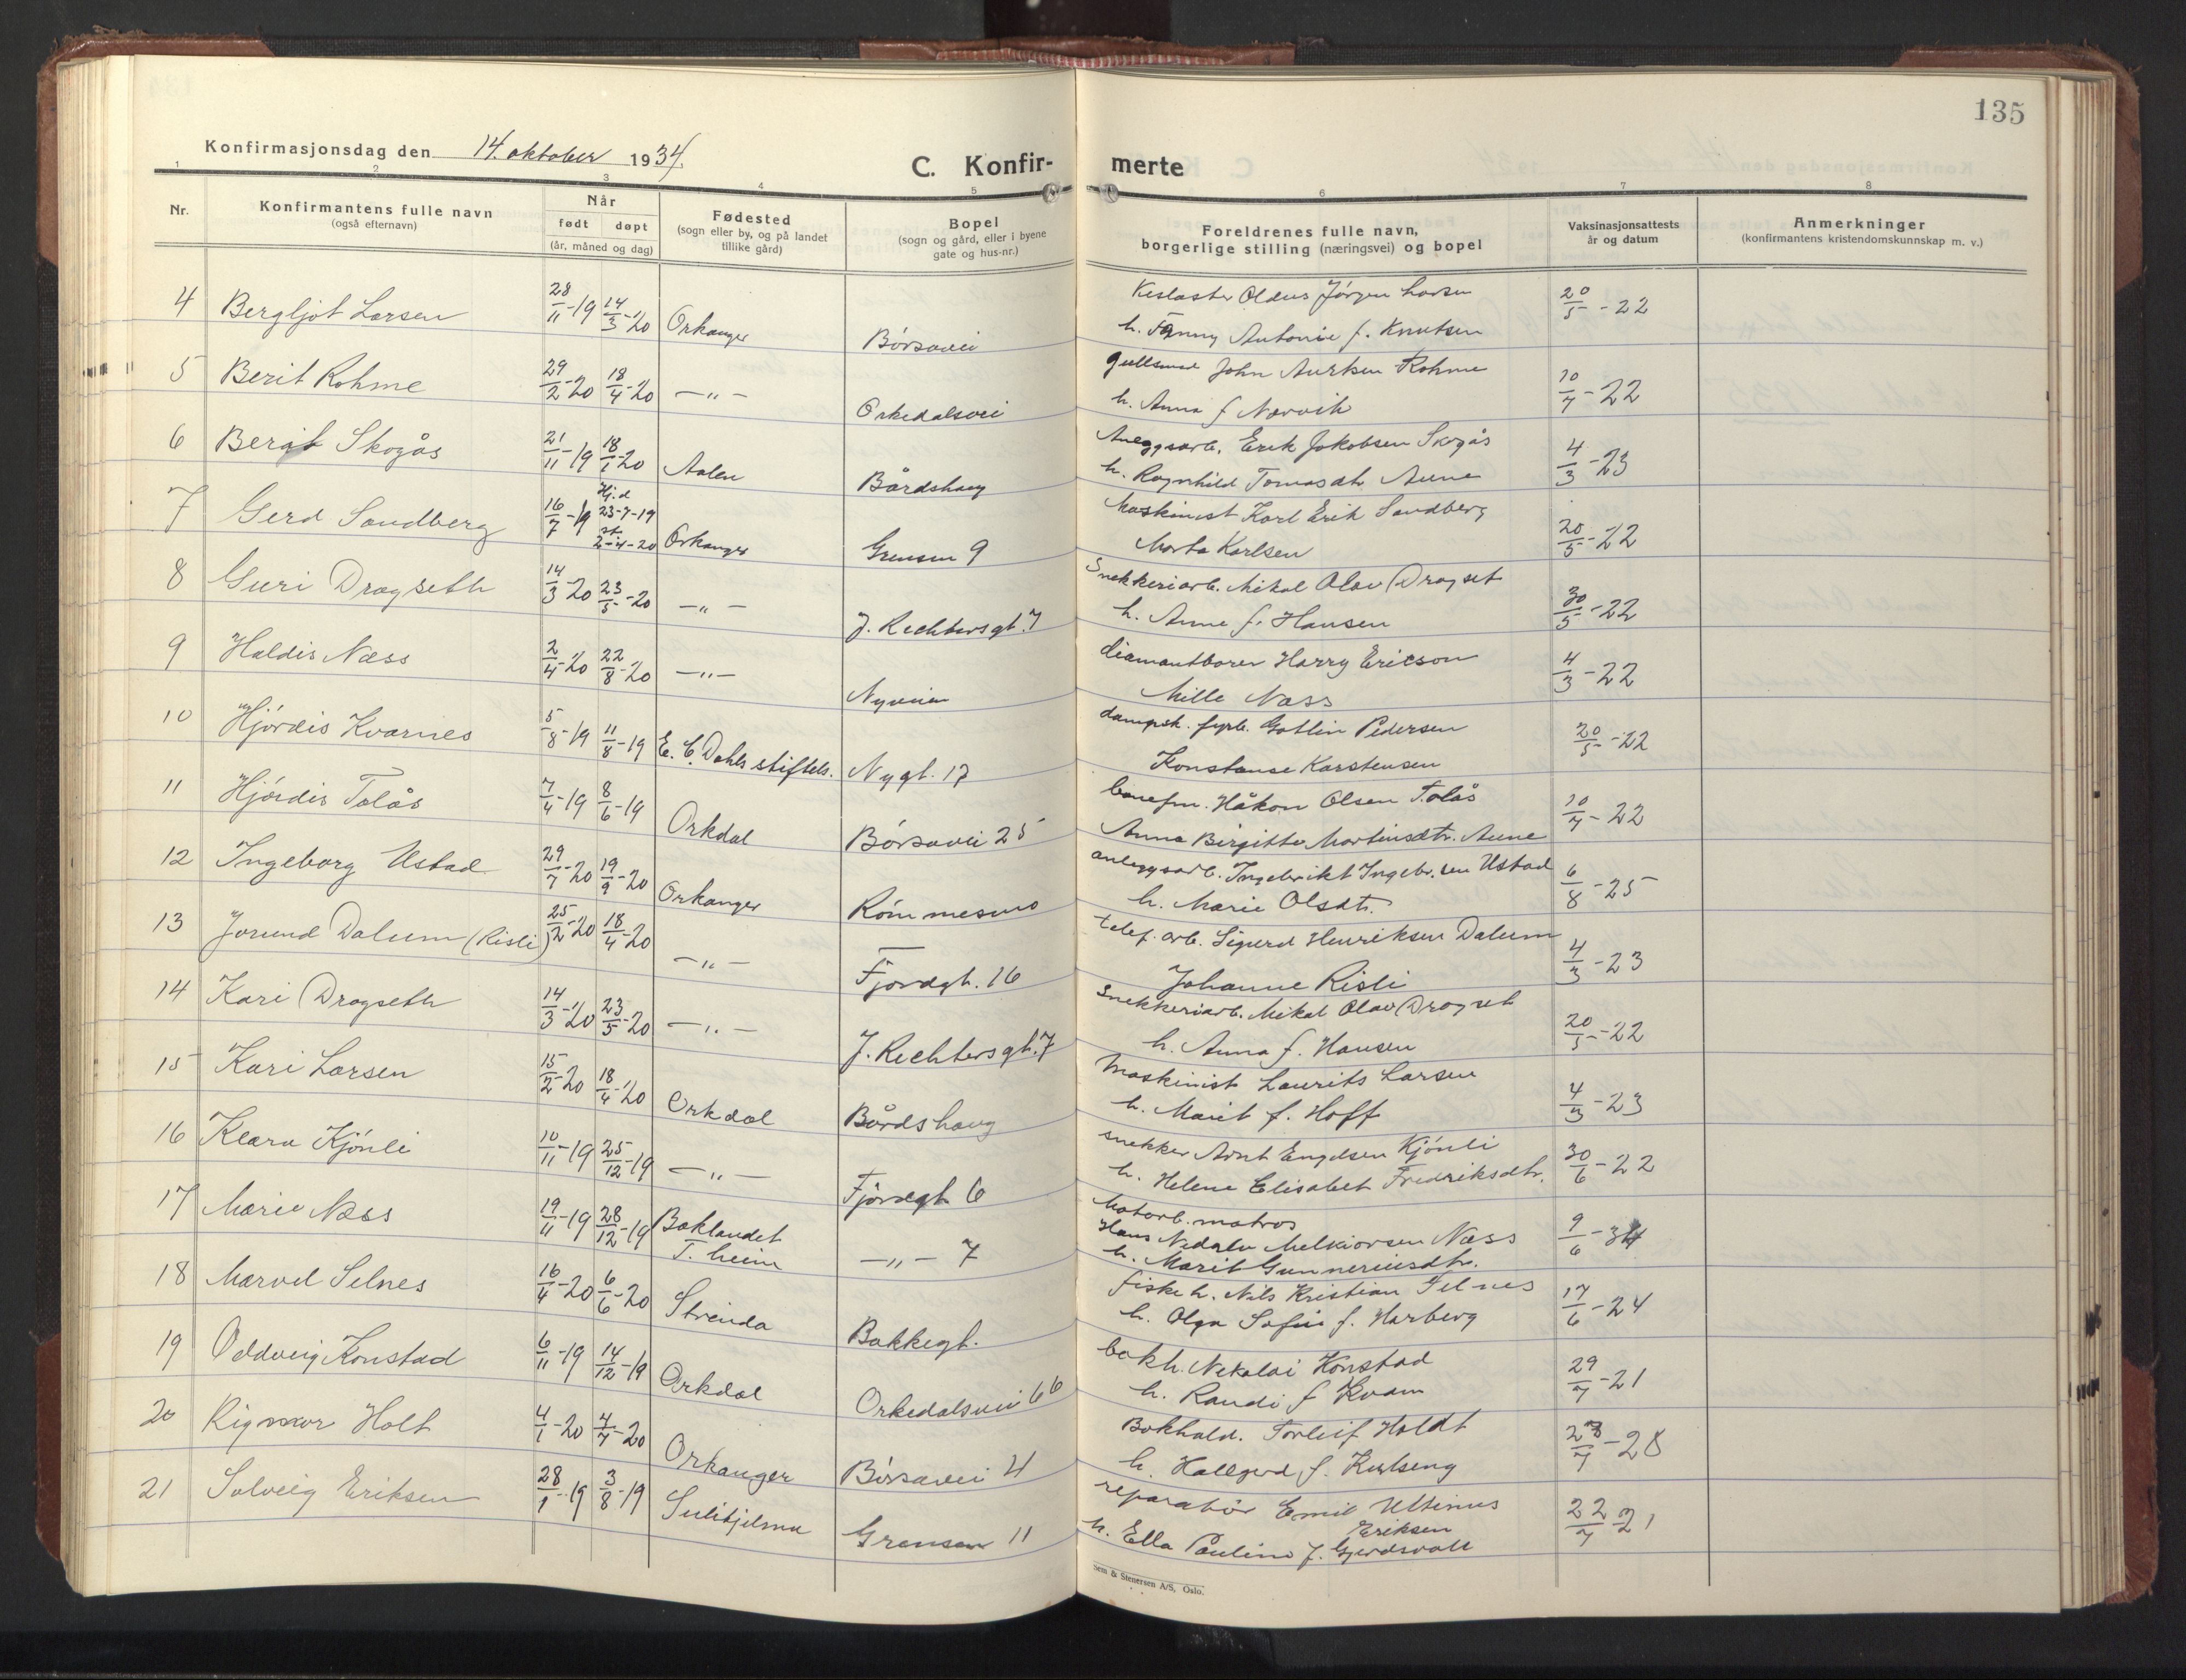 135
Konfirmasjonsdag den 14. oktober 1934.
C. Konfir- merte
1 2 3 4 5 6 7 8
Nr.
Konfirmantens fulle navn
(også efternavn)
Når
født døpt
(år, måned og dag)
Fødested
(sogn eller by, og på landet
tillike gård)
Bopel
(sogn og gård, eller i byene
gate og hus-nr.)
Foreldrenes fulle navn,
borgerlige stilling (næringsvei) og bopel
Vaksinasjonsattests
år og datum
Anmerkninger
(konfirmantens kristendomskunnskap m. v.)
4 Bergljot Larsen 28/11-19 14/3-20 Orkanger Börsavei Oldus Jörgen Larsen 20/5-22
h. Fanny Antonie f. Knutsen
5 Berit Rohme 29/2-20 18/4-20 —"— Orkedalsvei gullsmed John Rohme 10/7-22
h. Anna f Narvik
6 Berit Skogås 21/11-19 18/1-20 Aalen Bårdshaug Anleggsarb. Erik Jakobsen Skogås 4/3-23
h. Ragnhild Tomasdtr Aune
7 Gerd Sandberg 16/7-19 Hj.d 23-7-19 st. 2-4-20 Orkanger Grensen 9 Maskinist Karl Erik Sandberg 20/5-22
Marta Karlsen
8 Guri Dragseth 14/3-20 23/5-20 —"— J. Richtersgt. 7 Snekkeriarb. Mikal Olav Dragset 30/5-22
h. Anna f. Hansen
9 Haldis Næss 2/4-20 22/8-20 —"— Nyveien diamantborer Harry Ericson 4/3-22
Mille Næss
10 Hjördis Kvarnes 5/8-19 11/8-19 E. C. Dahls stiftels. Nygt. 17 dampsk. fyrb. Gotlin Pedersen 20/5-22
Konstanse Karstensen
11 Hjördis Tolås 7/4-19 8/6-19 Orkdal Börsavei 25 banefm. Håkon Olsen Tolås 10/7-22
Anna Birgitte Martinsdtr. Aune
12 Ingeborg Ustad 29/7-20 19/9-20 Orkanger Römmesmo anleggsarb. Ingebrikt Ingebr.sen Ustad 6/8-25
h. Marie Olsdtr.
13 Jorund Dalum (Risli) 25/2-20 18/4-20 —"— Fjordgt. 16 telef. arb. Sigurd Henriksen Dalum 4/3-23
Johanne Risli
14 Kari Dragseth 14/3-20 23/5-20 —"— J. Richtersgt. 7 Snekkeriarb. Mikal Olav Dragset 20/5-22
h. Anna f. Hansen
15 Kari Larsen 15/2-20 18/4-20 Orkdal Bårdshaug Maskinist Laurits Larsen 4/3-23
h. Marit f. Hoff
16 Klara Kjönli 10/11-19 25/12-19 —"— Fjordgt 6 snekker Arnt Engelsen Kjönli 30/6-22
h. Helene Elisabet Fredriksdtr.
17 Marie Næss 19/11-19 28/12-19 Baklandet T.heim —"— 7 Motorb. matros 9/6-34
Hans Melkiorsen Næss
h. Marit Gunneriusdtr.
18 Marvel Selnes 16/4-20 6/6-20 Strinda Bakkegt. fiskeh. Nils Kristian Selnes 17/6-24
h. Olga Sofie f. Harberg
19 Oddveig Konstad 6/11-19 14/12-19 Orkdal Orkedalsvei 66 bokh. Nekolai Konstad 29/7-21
h. Randi f Kvam
20 Rigmor Holt 4/1-20 4/7-20 Orkanger Börsavei 4 Bokhald. Torleif Holdt 23/7-28
h. Hallgerd f.
21 Solveig Eriksen 28/1-19 3/8-19 Sulitjelma Grensen 11 reparatör Emil Ultinus Eriksen 22/7 21
h. Ella Pauline f. Gjerdsvoll
Sem & Stenersen A/S, Oslo.